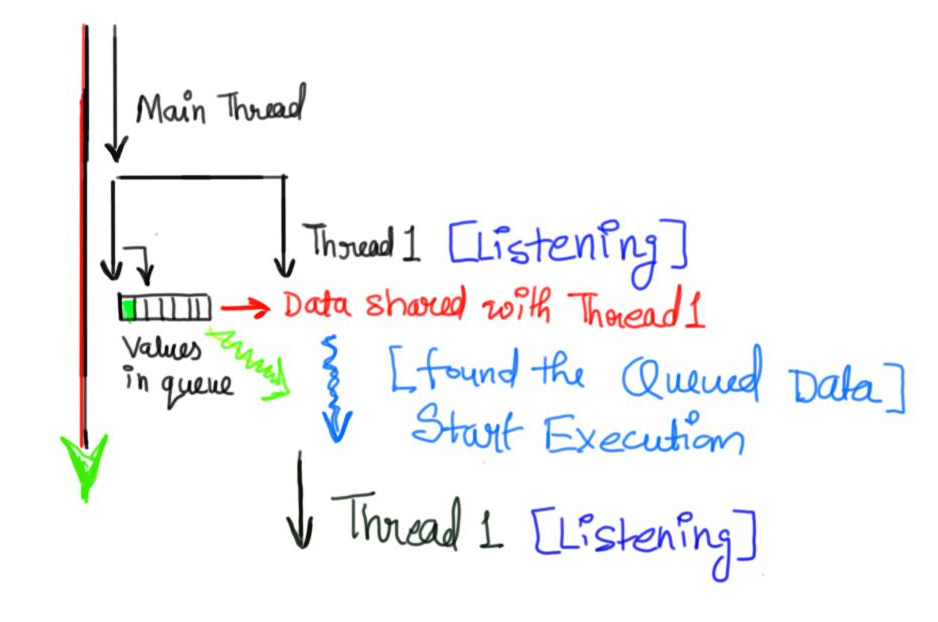 Main Thread
Thread 1 [Listening]
Data shared with Thread 1
Values
in queue
[found the Queued Data]
Start Execution
Thread 1 [Listening]